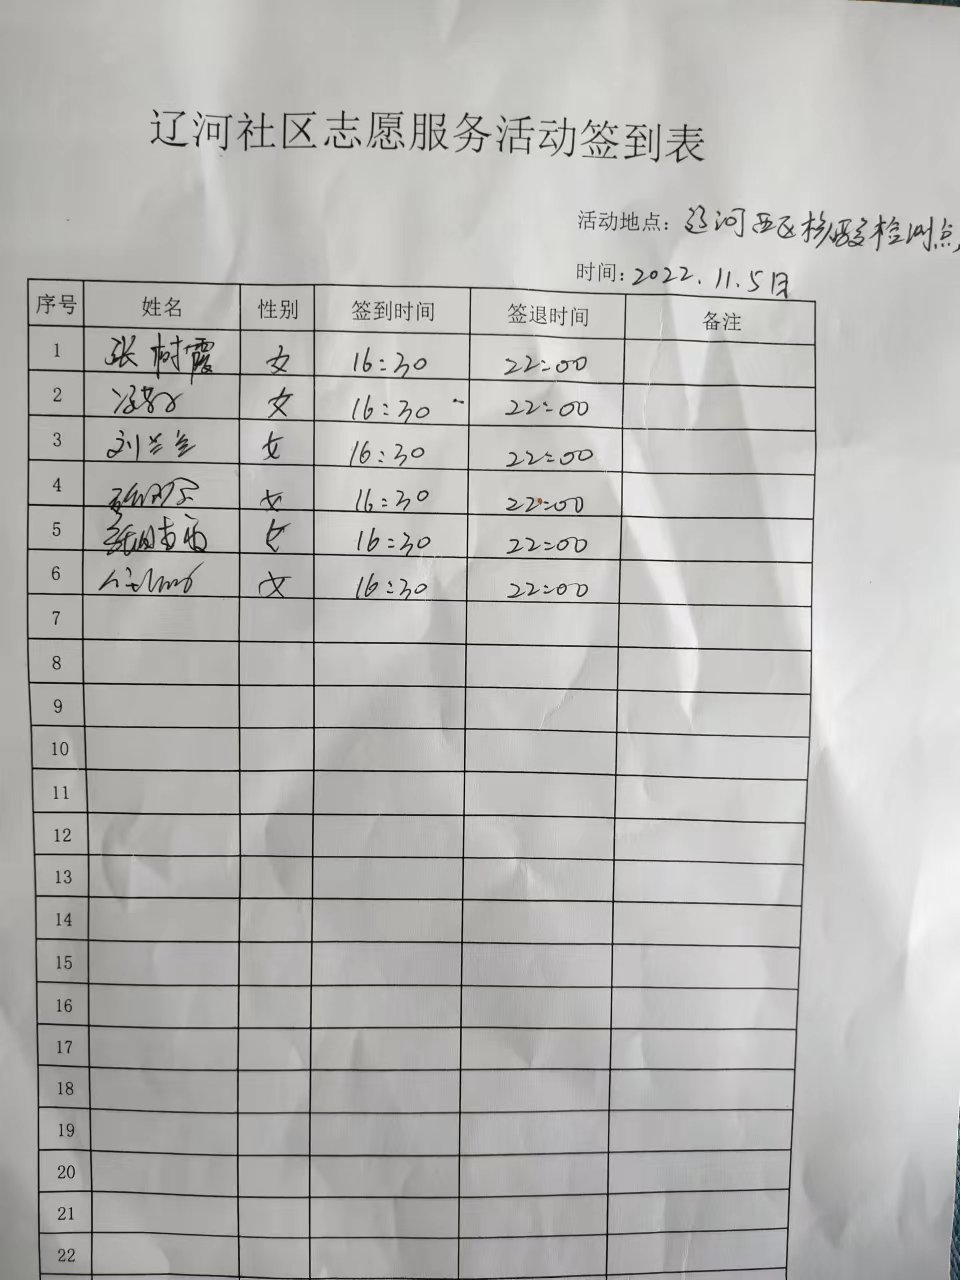 辽河社区志愿服务活动签到表
活动地点：辽河西区核酸检测点
时间：2022.11.5日
序号 姓名 性别 签到时间 签退时间 备注
1 张树霞 女 16:30 22:00
2 女 16:30 22:00
3 刘兰兰 女 16:30 22:00
4 女 16:30 22:00
5 女 16:30 22:00
6 女 16:30 22:00
7
8
9
10
11
12
13
14
15
16
17
18
19
20
21
22